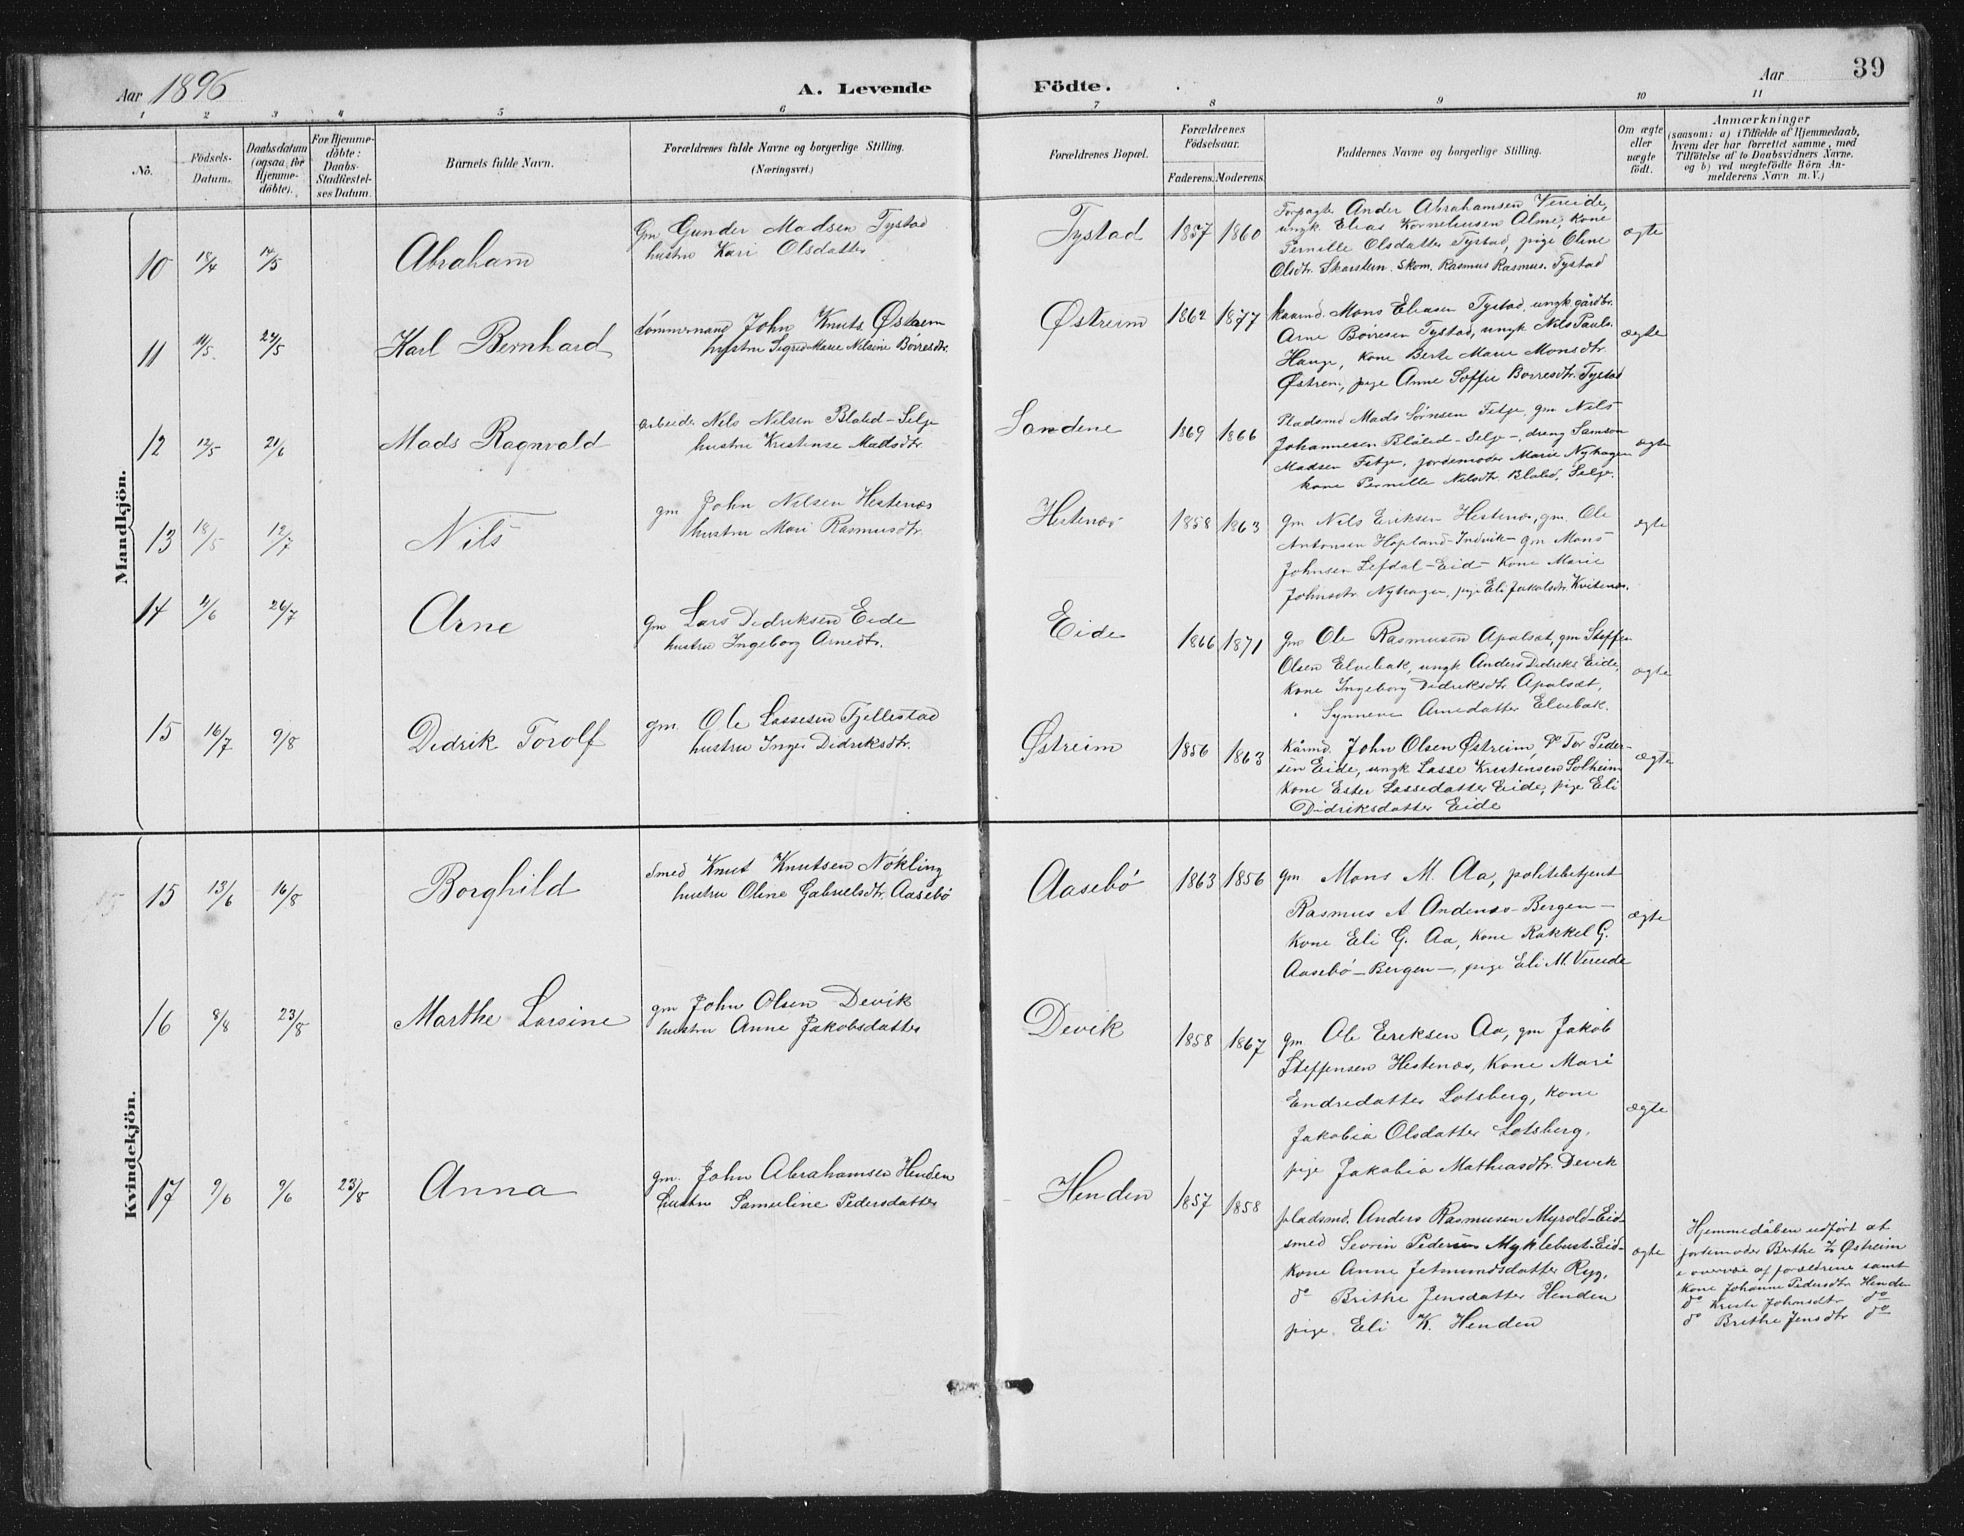 Aar 1896 A. Levende Födte. Aar 39
1 2 3 4 5 6 7 8 9 10 11
No. Födsels-Datum. Daabsdatum (ogsaa for Hjemme-döbte). For Hjemme-döbte: Daabs-Stadfæstel-ses Datum. Barnets fulde Navn. Forældrenes fulde Navne og borgerlige Stilling. (Næringsvei.) Forældrenes Bopæl. Forældrenes Födselsaar. Faderens. Moderens. Faddernes Navne og borgerlige Stilling. Om ægte eller uægte födt. Anmærkninger (saasom: a) i Tilfælde af Hjemmedaab, hvem der har forrettet samme, med Tilföielse af to Daabsvidners Navne, og b) ved uægtefödte Börn An-melderens Navn m. V.)
Mandkjön.
10 18/4 14/5 Abraham
Gm Gunder Madsen Tystad
hustru Kari Olsdatter
Tystad 1857 1860
Forpagt. Ander Abrahamsen Vereide,
ungk. Elias Korneliussen Alme, kone
Pernille Olsdatter Tystad, pige Oline
Olsdtr. Skarstein. Skom. Rasmus Rasmus. Tystad
ægte
11 11/5 24/5 Karl Bernhard
tömmermand John Knuts. Østrem
hustru Sigrid Marie Nilsine Börresdtr.
Østreim 1862 1877
kaarmd. Mons Eliasen Tystad, ungk. gårdbr.
Arne Börresen Tystad, ungk Nils Pauls.
Hauge, kone Berte Marie Monsdtr.
Østrem, pige Anne Soffie Borresdtr. Tystad
ægte
12 12/5 21/6 Mads Ragnvald
arbeider Nils Nilsen Blålid-Selje
hustru Kristense Madsdtr.
Sandene 1869 1866
Pladsmd Mads Sörnsen Fitje, gm Nils
Johannesen Blålid-Selje-, dreng Samson
Madsen Fitje, jordemoder Marie Nyhagen
kone Pernille Nilsdtr. Blålid, Selje.
ægte
13 18/5 12/7 Nils
gm John Nilsen Hestenæs
hustru Mari Rasmusdtr.
Hestenæs 1858 1863
gm Nils Eriksen Hestenæs, gm. Ole
Antonsen Hopland-Indvik- gm Mons
Johnsen Lefdal-Eid- kone Marie
Johnsdtr. Nyhagen, pige Eli Jakobsdtr Kvitenæs.
ægte
14 /6 26/7 Arne
gm Lars Didriksen Eide
hustru Ingeborg Arnedtr.
Eide 1866 1871
gm Ole Rasmusen Apalsæt, gm Steffen
Olsen Elvebak, ungk Anders Didriks Eide,
kone Ingeborg Didriksdtr Apalsæt,
" Synneve Arnedatter Elvebak.
ægte
15 16/7 9/8 Didrik Torolf
gm. Ole Lassesen Fjellestad
hustru Inger Didriksdtr.
Østreim 1856 1863
kårmd. John Olsen Østreim, do Tor Peder-
sen Eide, ungk Lasse Kristensen Solheim
kone Ester Lassedatter Eide, pige Eli
Didriksdatter Eide
ægte
Kvindekjön.
15 15 13/6 16/8 Borghild
Smed Knut Knutsen Nökling
hustru Oline Gabrielsdtr. Aasebö
Aasebö 1863 1856
gm Mons M. Aa, politibetjent
Rasmus A Andenæs-Bergen-
kone Eli G. Aa, kone Rakkel G.
Aasebö-Bergen-, pige Eli M. Vereide
ægte
16 8/8 23/8 Marthe Larsine
gm John Olsen Devik
hustru Anne Jakobsdatter
Devik 1858 1867
gm. Ole Eriksen Aa, gm Jakob
Steffensen Hestenæs, kone Mari
Endredatter Lotsberg, kone
Jakobia Olsdatter Lotsberg,
pige Jakobia Mathiasdtr. Devik
ægte
17 9/6 9/6 23/8 Anna
gm. John Abrahamsen Henden
hustru Samueline Pedersdatter
Henden 1857 1858
pladsmd. Anders Rasmusen Myrold-Eid-
smed Sevrin Pedersen Myklebust-Eid-
kone Anne Jetmundsdatter Ryg,
do Brithe Jensdatter Henden
pige. Eli K. Henden
ægte
Hjemmedåben udfört af
jordemoder Berthe Østreim
i overvær af forældrene samt
kone Johanne Pedersdtr. Henden
do Kristi Johnsdtr do
do Brithe Jensdtr do